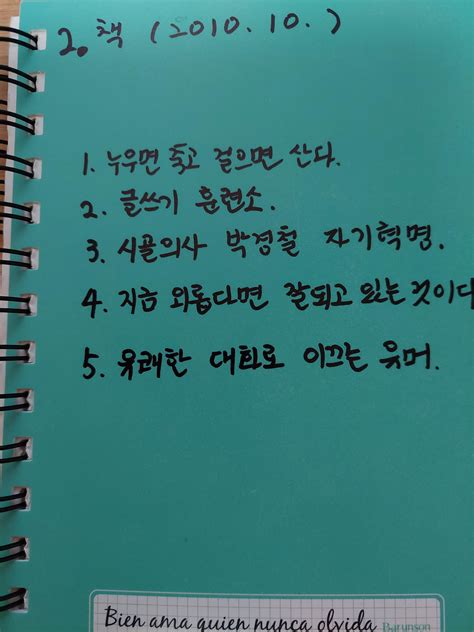 2. 책 (2010. 10. )
1. 누우면 죽고 걸으면 산다.
2. 글쓰기 훈련소.
3. 시골의사 박경철 자기혁명.
4. 지금 외롭다면 잘되고 있는 것이다
5. 유쾌한 대화로 이끄는 유머.
Bien ama quien nunca olvida Barunson